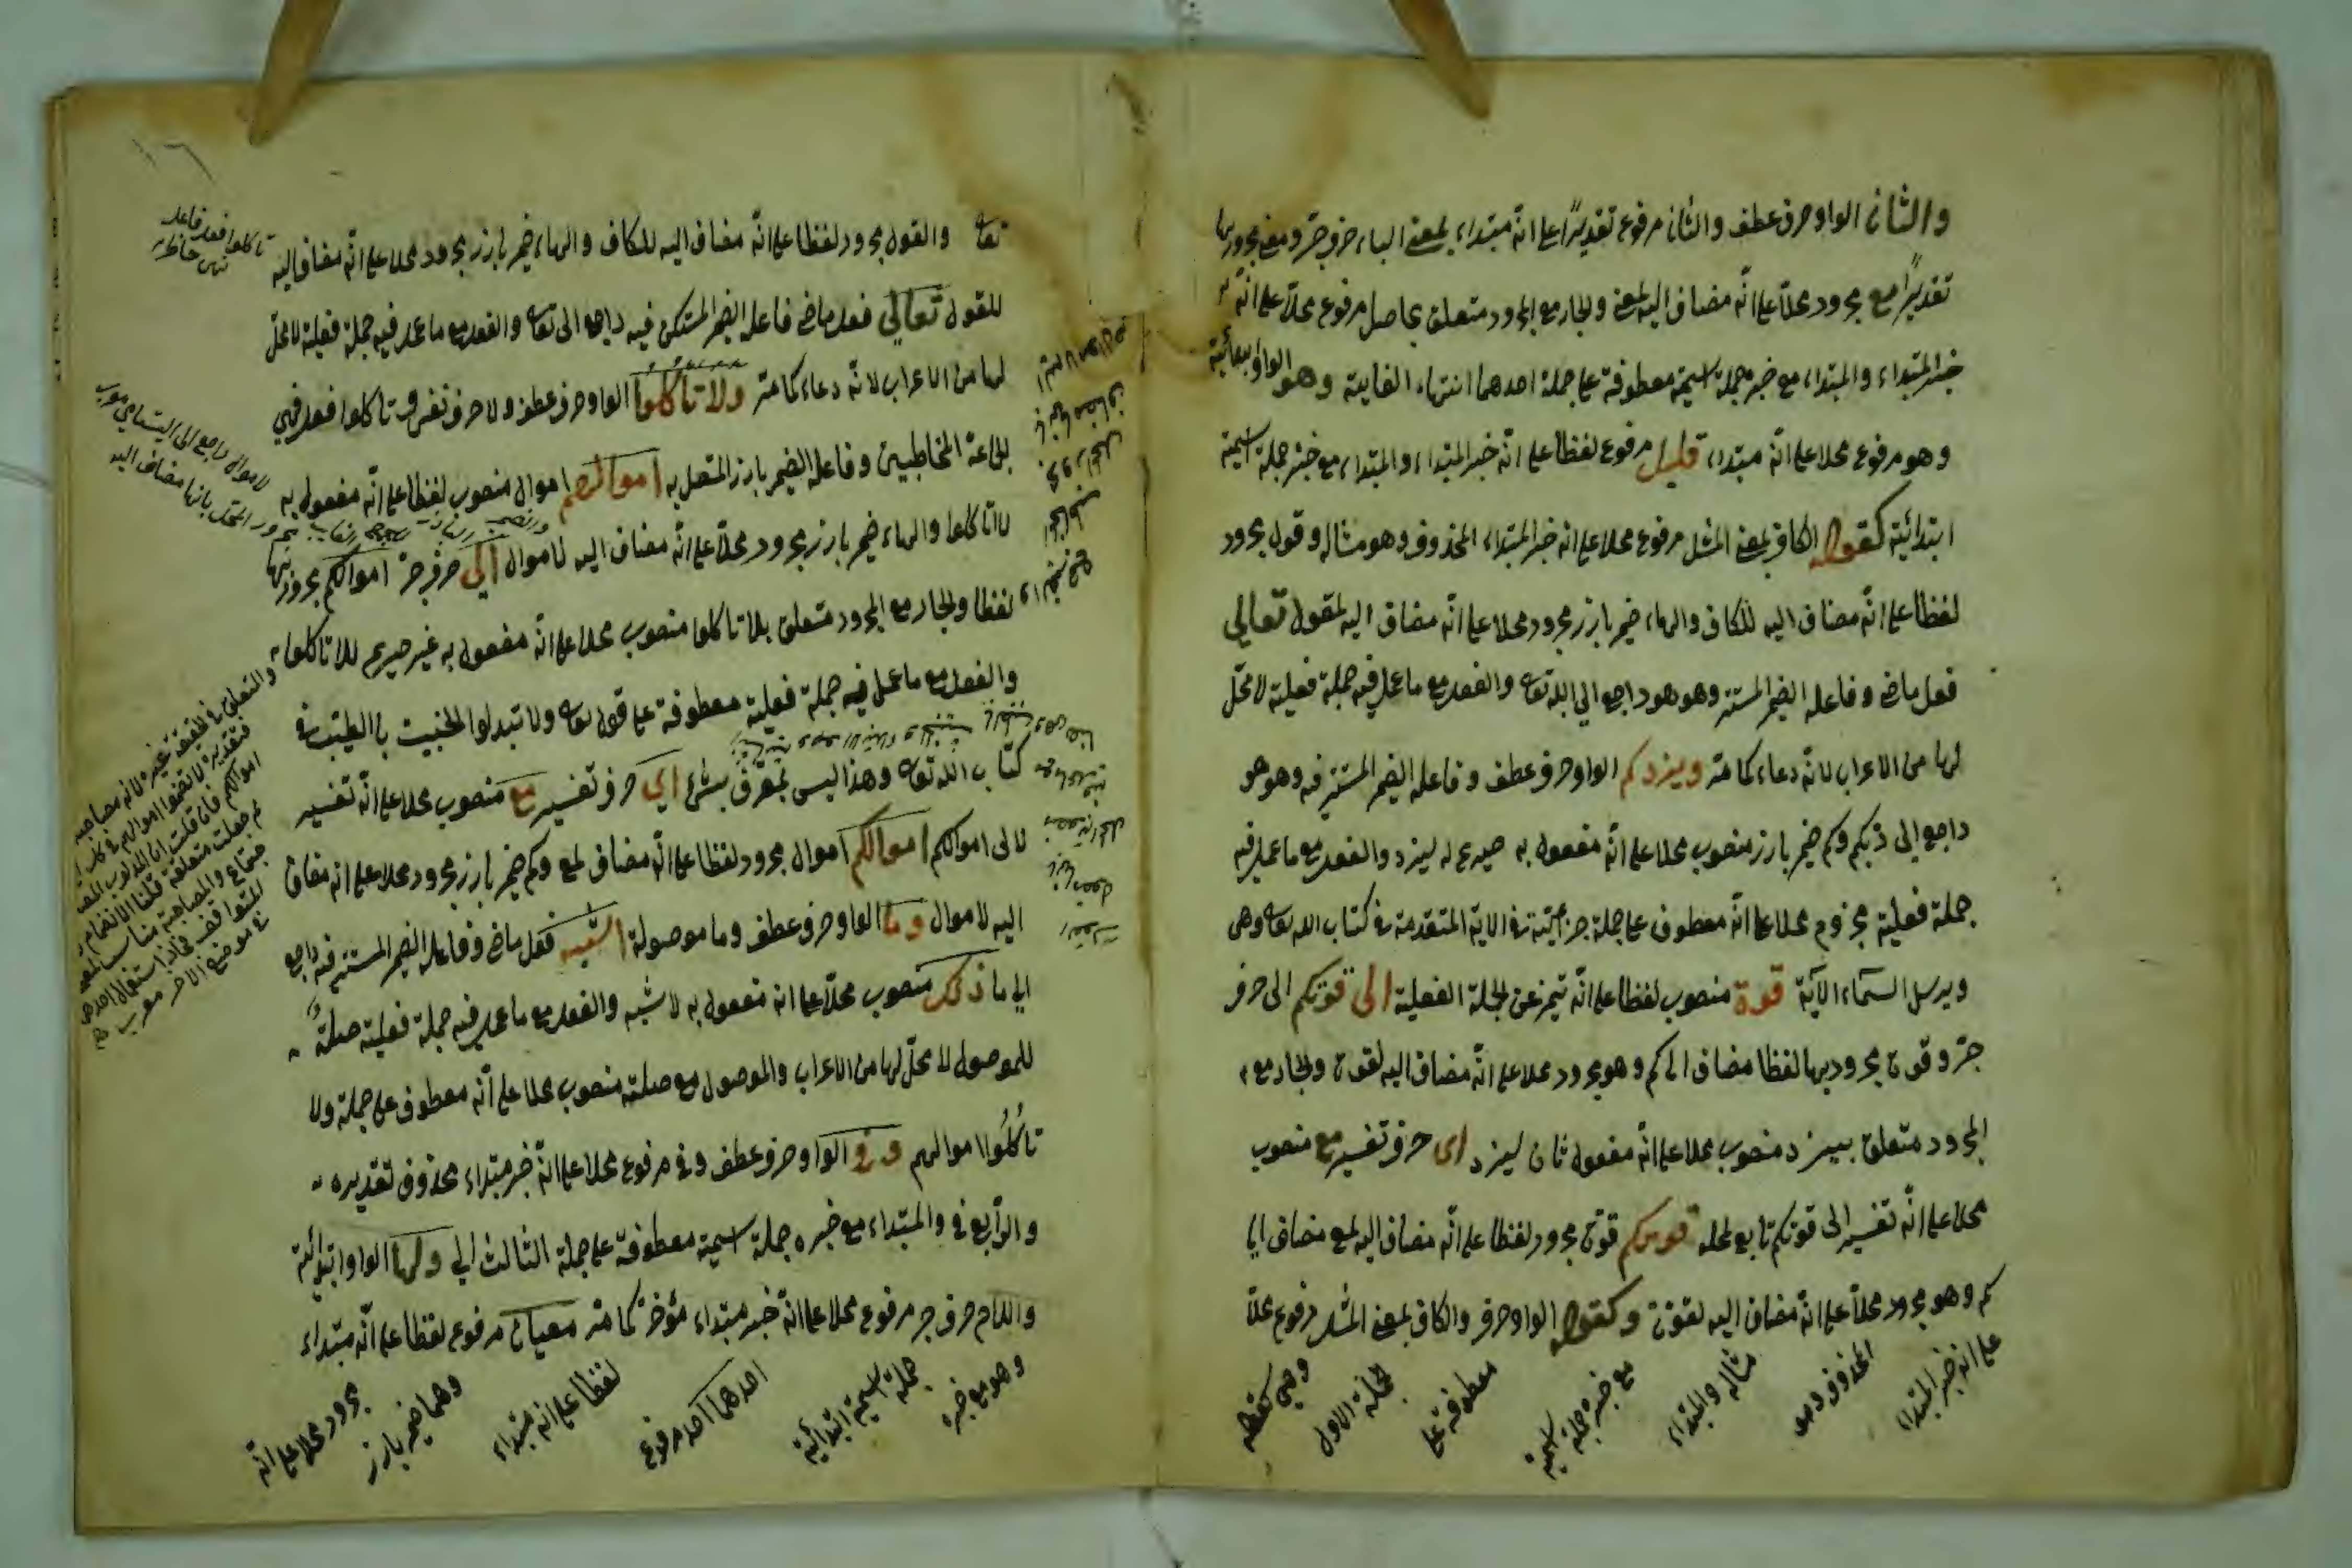 والثان الواو حرف عطف والثان مرفوع تقديرًا على انّه مبتداء بمعنى الباء حرف جرّ ومع مجرور بها
تقديرًا مع مجرور محلا على انّه مضاف اليه لمعنى والجار مع المجرور متعلق بحاصل مرفوع محلا على انّه
خبر المبتداء والمبتداء مع خبره جملة اسمية معطوفة على جملة احدهما انتهاء الغاية وهو الواو ابتدائية
وهو مرفوع محلا على انّه مبتداء قليل مرفوع لفظا على انّه خبر المبتداء والمبتداء مع خبر جملة اسمية
ابتدائية كقوله الكاف بمعنى المثل مرفوع محلا على انه خبر المبتداء المحذوف وهو مثاله وقول مجرور
لفظا على انّه مضاف اليه للكاف والهاء ضمير بارز مجرور محلا على انّه مضاف اليه لقول تعالى
فعل ماض وفاعله الضمير المستتر وهو هو راجع الى الله تعا والفعل مع ما عمل فيه جملة فعلية لا محلّ
لها من الاعراب لانّه دعاء كما مرّ ويزدكم الواو حرف عطف وفاعله الضمير المستتر فيه وهو هو
راجع الى ربكم وكم ضمير بارز منصوب محلا على انّه مفعول به صريح له ليزد والفعل مع ما عمل فيه
جملة فعلية مجزوم محلا على انّه معطوف على جملة جزائية في الاية المتقدمة في كتاب الله تعا وهى
ويرسل السماء الآية قوة منصوب لفظا على انّه تميز عن الجملة الفعلية الى قوتكم الى حرف
جرّ وقوت مجرور بها لفظا مضاف الى كم وهو مجرور محلا على انّه مضاف اليه لقوت والجار مع
المجرور متعلق بيزد منصوب محلا على انّه مفعول ثان ليزد اى حرف تفسير مع منصوب
محلا على انّه تفسير الى قوتكم تابع لمحله قوتكم قوت مجرور لفظا على انّه مضاف اليه لمع مضاف الى
كم وهو مجرور محلا على انّه مضاف اليه لقوت وكقوله الواو حرف والكاف بمعنى المثل مرفوع محلا
على انه خبر المبتداء
المحذوف وهو
مثاله والمبتداء
مع خبره جملة اسمية
معطوفة على
الجملة الاولى
وهى كقوله
١٦
تعا والقول مجرور لفظا على انّه مضاف اليه للكاف والهاء ضمير بارز مجرور محلا على انّه مضاف اليه
للقول تعالى فعل ماض فاعله الضمير المستكن فيه راجع الى تعا والفعل مع ما عمل فيه جملة فعلية لا محلّ
لها من الاعراب لانّه دعاء كما مرّ ولا تأكلوا الواو حرف عطف ولا حرف نفى وتاكلوا فعل نهى
لجماعة المخاطبين وفاعله الضمير بارز المتصل به اموالهم اموال منصوب لفظا على انّه مفعول به
لا تاكلوا والهاء ضمير بارز مجرور محلا على انّه مضاف اليه لاموال الى حرف جرّ اموالكم مجرور بها
لفظا والجار مع المجرور متعلق بلا تاكلوا منصوب محلا على انّه مفعول به غير صريح للا تاكلوا
والفعل مع ما عمل فيه جملة فعلية معطوفة على قوله تعا ولا تبدلوا الخبيث بالطيّب في
كتاب الله تعا وهذا ليس بمعرف بشئ اى حرف تفسير مع منصوب محلا على انّه تفسير
لالى اموالكم اموالكم اموال مجرور لفظا على انّه مضاف لمع وكم ضمير بارز مجرور محلا على انه مضاف
اليه لاموال وما الواو حرف عطف وما موصولة اشبه فعل ماض وفاعله الضمير المستتر فيه راجع
الى ما ذلك منصوب محلا على انه مفعول به لاشبه والفعل مع ما عمل فيه جملة فعلية صلة
للموصول لا محلّ لها من الاعراب والموصول مع صلته منصوب محلا على انّه معطوف على جملة ولا
تاكلوا اموالهم وفى الواو حرف عطف وفى مرفوع محلا على انّه خبر مبتداء محذوف تقديره
والرابع فى والمبتداء مع خبره جملة اسمية معطوفة على جملة الثالث الى ولها الواو ابتدائية
واللام حرف جر مرفوع محلا على انّه خبر مبتداء مؤخر كما مرّ معيان مرفوع لفظا على انّه مبتداء
وهو مع خبره
جملة اسمية ابتدائية
احدهما احد مرفوع
لفظا على انه مبتداء
وهما ضمير بارز
مجرور محلا على انّه